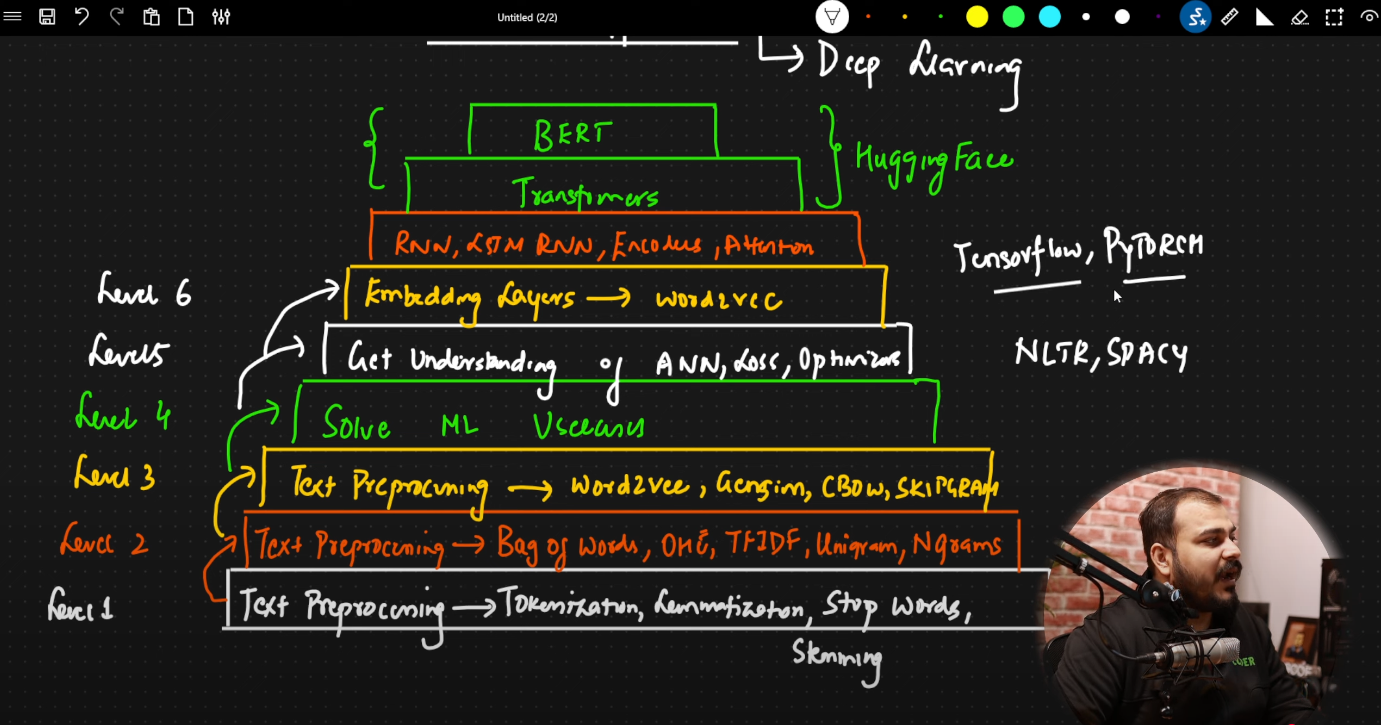 Untitled (2/2)
Deep Learning
BERT
HuggingFace
Transfomers
RNN, LSTM RNN, Encoders, Attention
Tensorflow, PyTORCH
Level 6
Embedding Layers → word2vec
Level5
Get Understanding of ANN, Loss, Optimizers
NLTK, SPACY
Level 4
Solve ML Usecases
Level 3
Text Preprocessing → word2vec, Gensim, CBOW, SKIPGRAM
Level 2
Text Preprocessing → Bag of words, OHE, TFIDF, Unigram, Ngrams
Level 1
Text Preprocessing → Tokenization, Lemmatization, Stop words,
Stemming